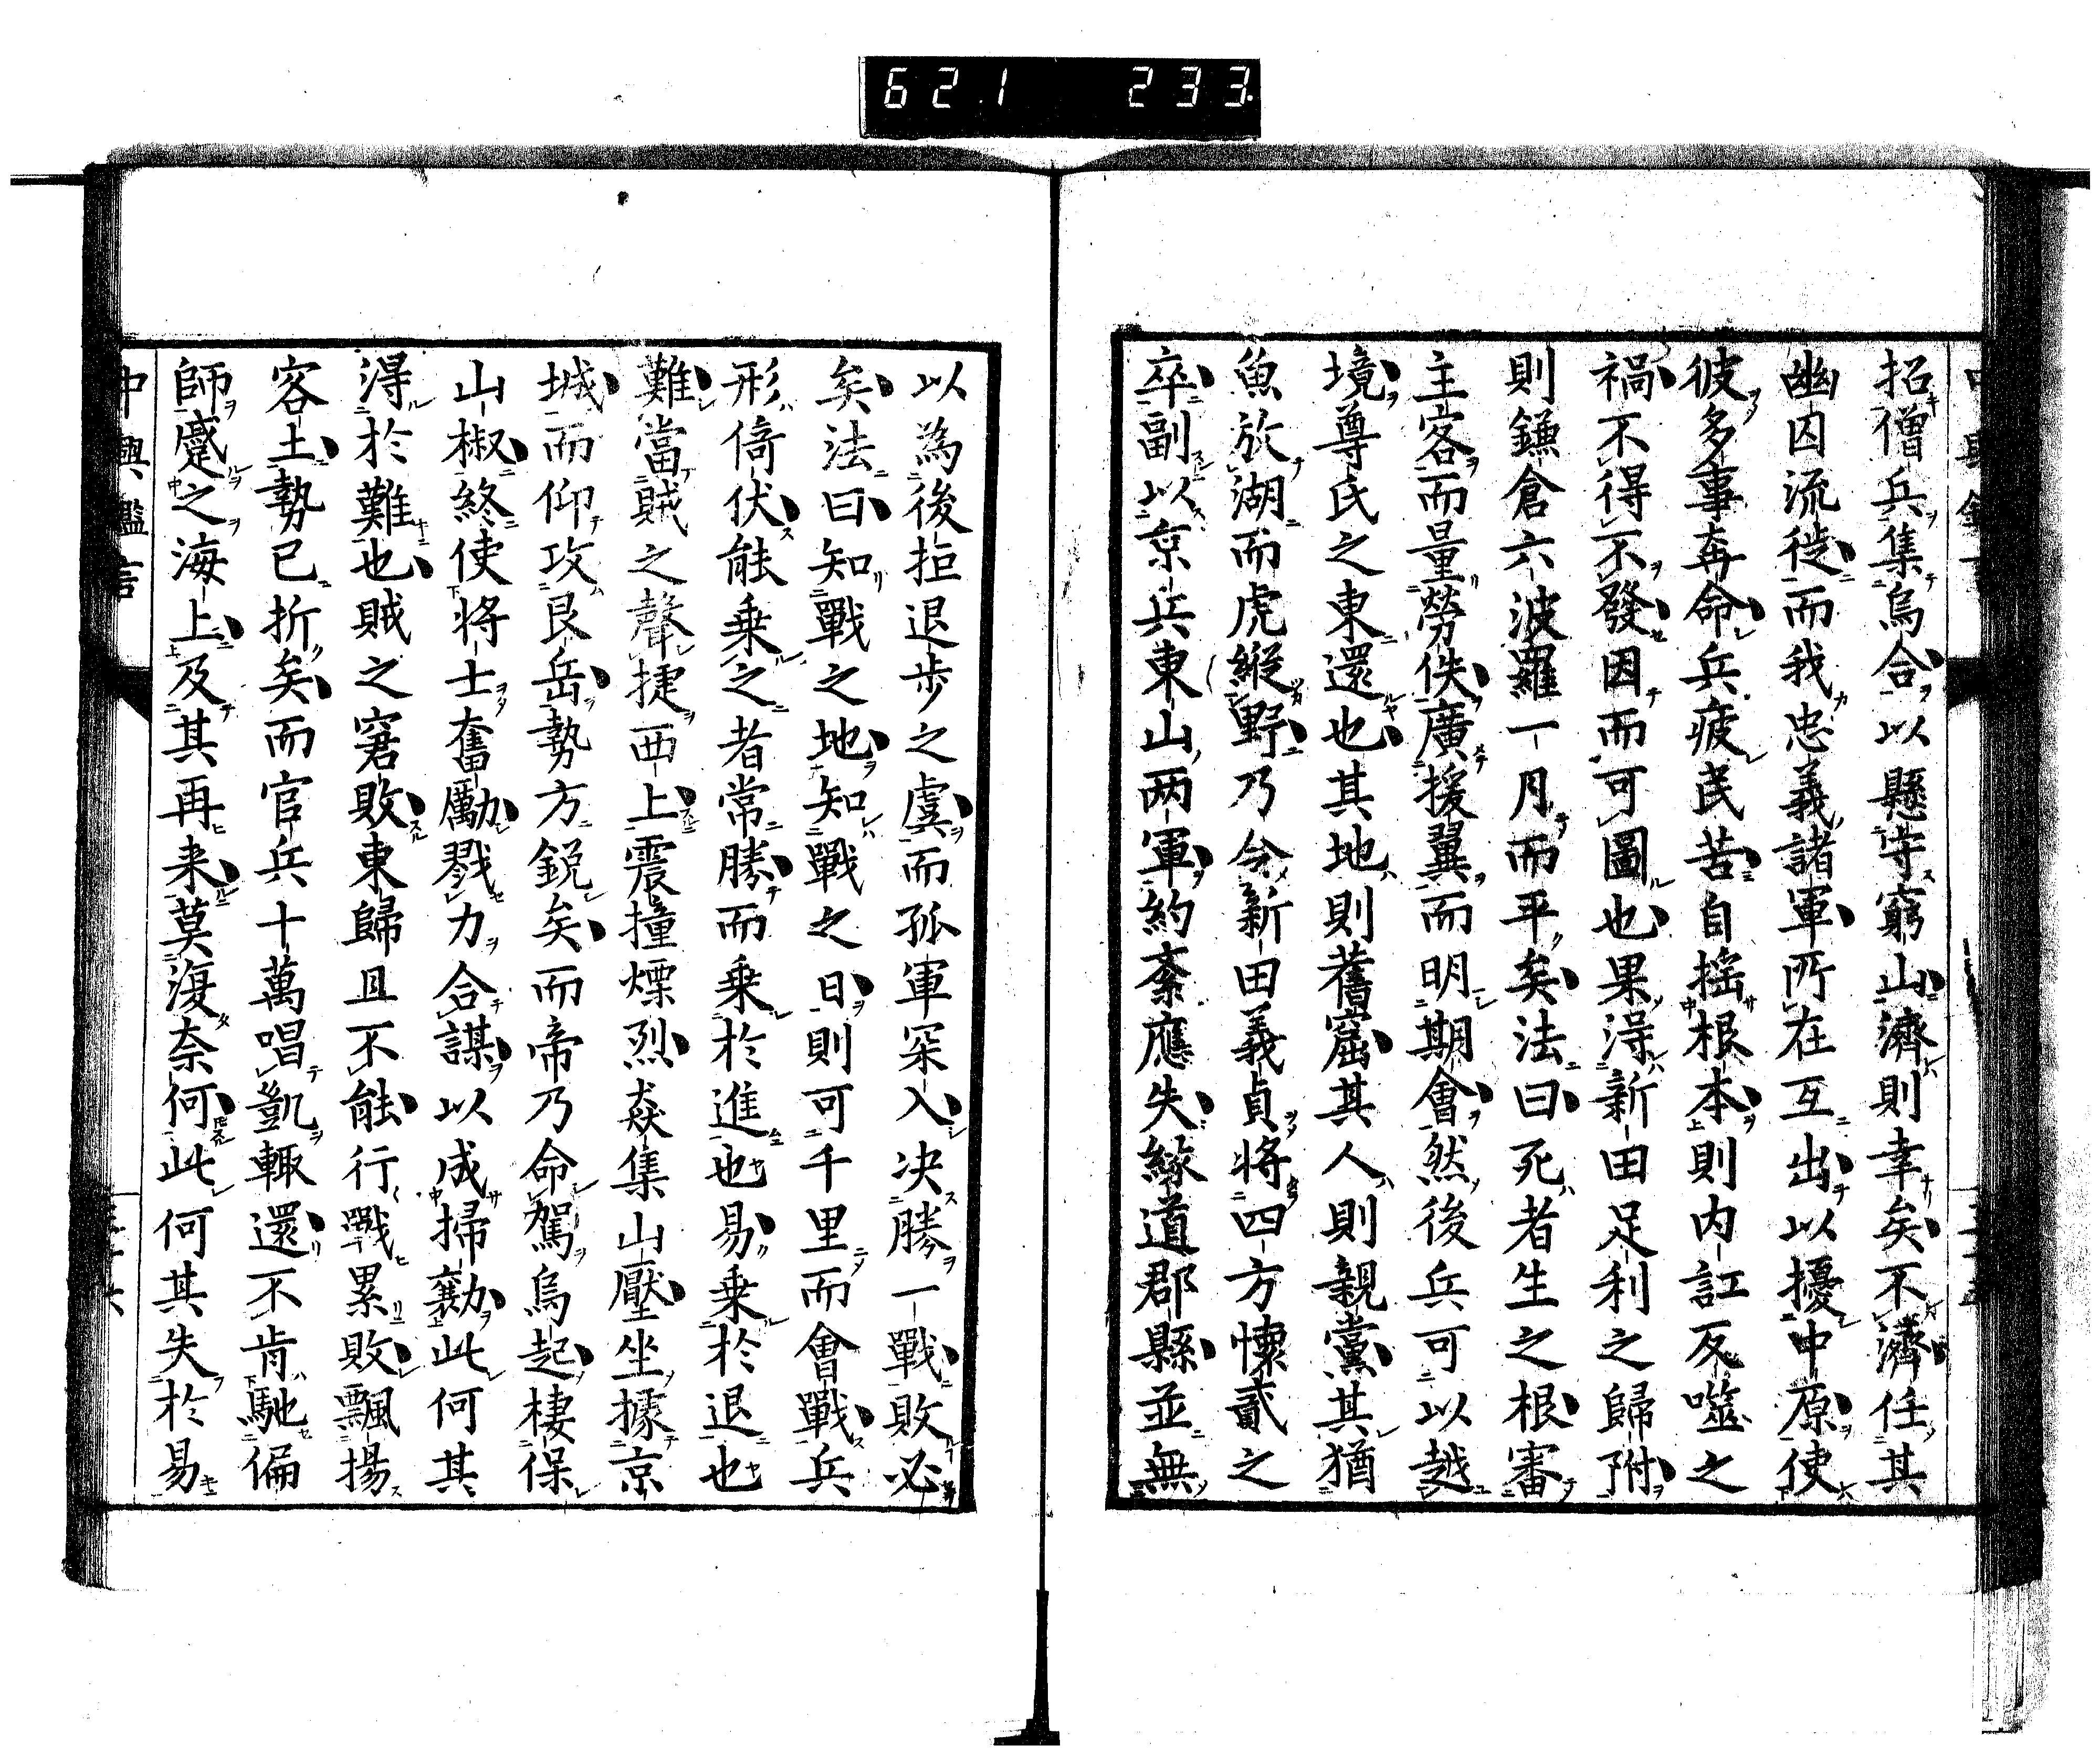 621 233
招僧兵集烏合以懸守窮山濟則幸矣不濟任其
幽囚流徙而我忠義諸軍所在互出以擾中原使
彼多事奔命兵疲民苦自揺根本則内訌反噬之
禍不得不發因而可圖也果淂新田足利之歸附
則鎌倉六波羅一月而平矣法曰死者生之根審
主客而量勞佚廣援翼而明期會然後兵可以越
境尊氏之東還也其地則舊窟其人則親黨其猶
魚放湖而虎縱野乃令新田義貞將四方懷貳之
卒副以京兵東山兩軍約紊應失緣道郡縣並無
以為後拒退步之虞而孤軍深入决勝一戰敗必
矣法曰知戰之地知戰之日則可千里而會戰兵
形倚伏能乗之者常勝而乗於進也易乗於退也
難當賊之聲捷西上震撞煙烈猋集山壓坐據京
城而仰攻艮岳勢方鋭矣而帝乃命駕烏起棲保
山椒終使将士奮勵戮力合謀以成掃勷此何其
淂於難也賊之窘敗東歸且不能行戰累敗飄揚
客土勢已折矣而官兵十萬唱凱輙還不肯馳偏
師蹙之海上及其再来莫復奈何此何其失於易
中興鑑言